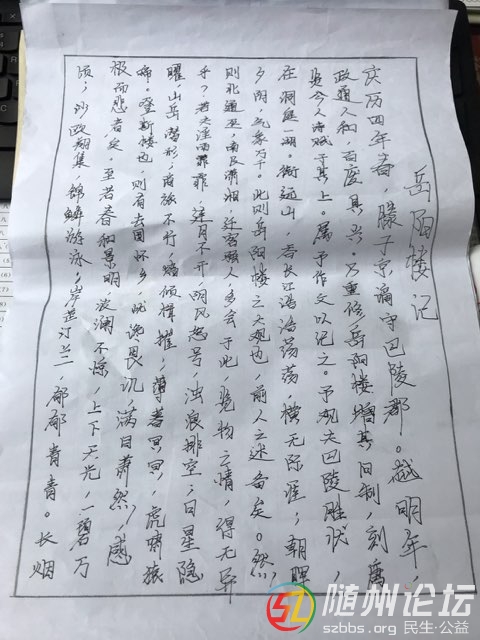 岳阳楼记
庆历四年春，滕子京谪守巴陵郡。越明年，
政通人和，百废具兴。乃重修岳阳楼，增其旧制，刻唐
贤今人诗赋于其上。属予作文以记之。予观夫巴陵胜状，
在洞庭一湖。衔远山，吞长江，浩浩荡荡，横无际涯；朝晖
夕阴，气象万千。此则岳阳楼之大观也，前人之述备矣。然
则北通巫，南及潇湘，迁客骚人，多会于此，览物之情，得无异
乎？若夫淫雨霏霏，连月不开，阴风怒号，浊浪排空；日星隐
曜，山岳潜形；商旅不行，樯倾楫摧；薄暮冥冥，虎啸猿
啼。登斯楼也，则有去国怀乡，忧谗畏讥，满目萧然，感
极而悲者矣。至若春和景明，波澜不惊，上下天光，一碧万
顷；沙鸥翔集，锦鳞游泳；岸芷汀兰，郁郁青青。长烟
随州论坛
szbbs.org 民生·公益